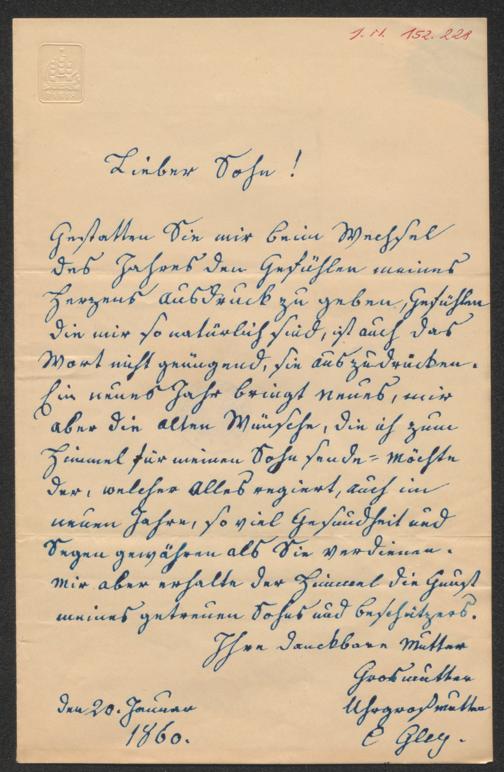 I. N. 152.228
Lieber Sohn!
Gestatten Sie mir beim Wechsel
des Jahres den Gefühlen meines
Herzens Ausdruck zu geben, Gefühlen
die mir so natürlich sind, ist auch das
Wort nicht genügend, sie auszudrücken.
Ein neues Jahr bringt neues, mir
aber die alten Wünsche, die ich zum
Himmel für meinen Sohn sende – Möchte
der, welcher alles regiert, auch im
neuen Jahre, so viel Gesundheit und
Segen gewähren als Sie verdienen.
Mir aber erhalte der Himmel die Gunst
meines getreuen Sohns und Beschützers.
Ihre danckbare Mutter
Grosmutter
Uhrgroßmutter
den 20. Januar
1860. E Gley.